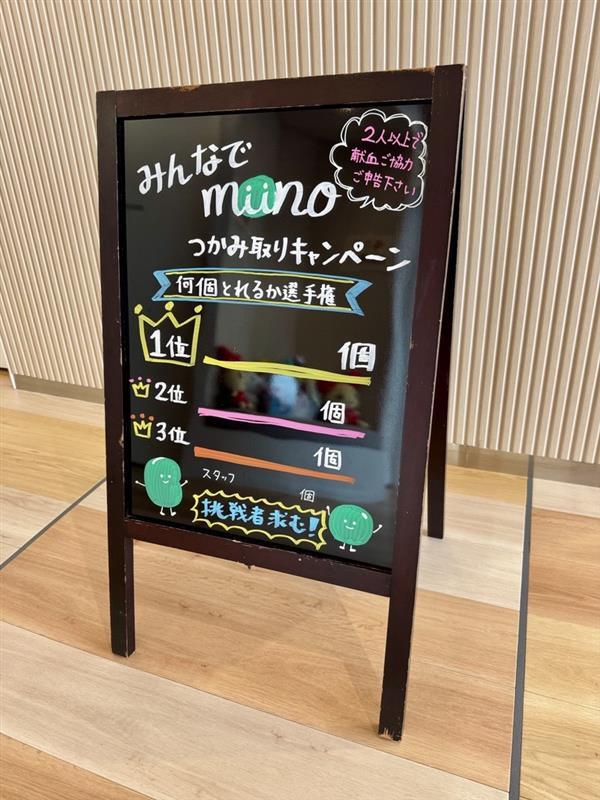 みんなで
miino
2人以上で
献血ご協力
ご申告下さい
つかみ取りキャンペーン
何個とれるか選手権
1位 個
2位 個
3位 個
スタッフ 個
挑戦者求む!